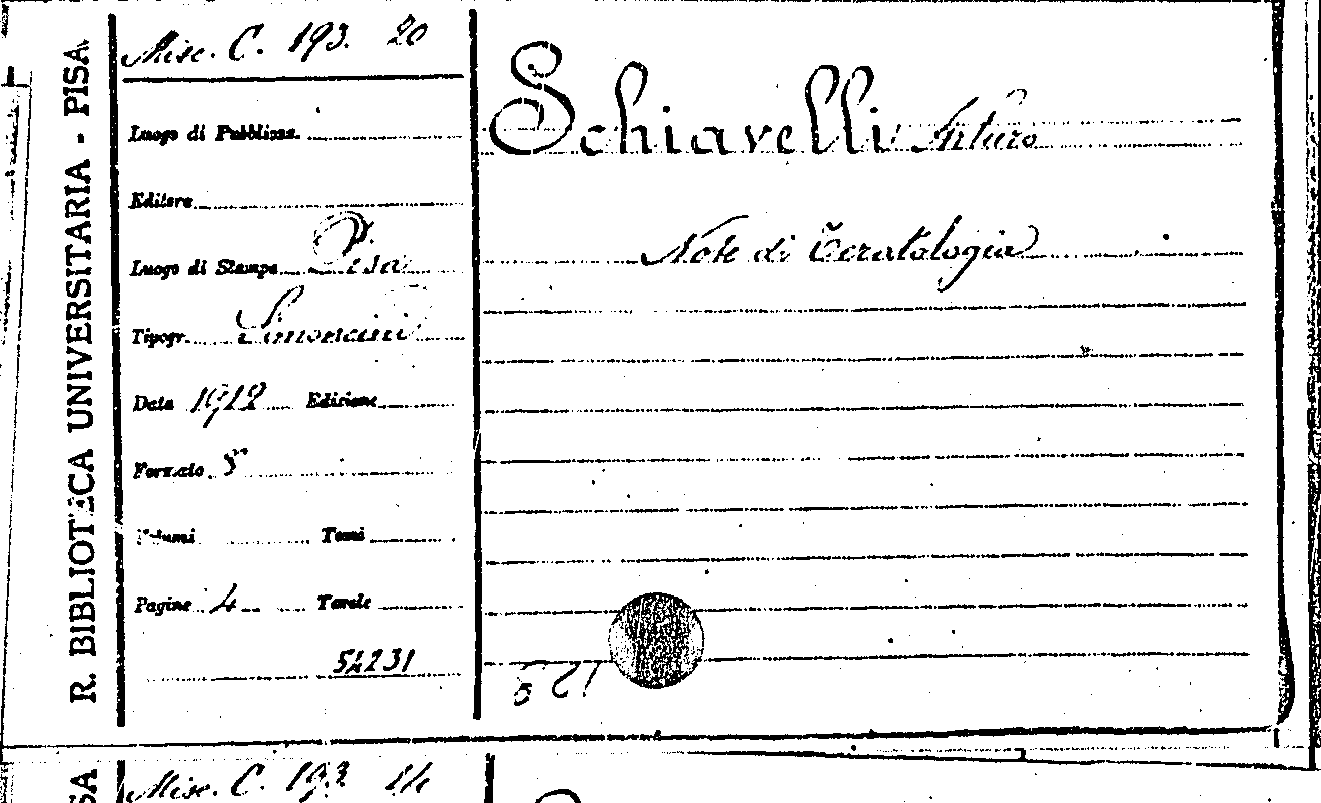 R. BIBLIOTECA UNIVERSITARIA - PISA
Misc. C. 193. 20
Luogo di Pubblicaz.
Editore
Luogo di Stampa Pisa
Tipogr. Simoncini
Data 1912 Edizione
Formato 8°
Volumi Tomi
Pagine 4 Tavole
54231
Schiavelli Arturo
Note di Teratologia
Misc. C. 193